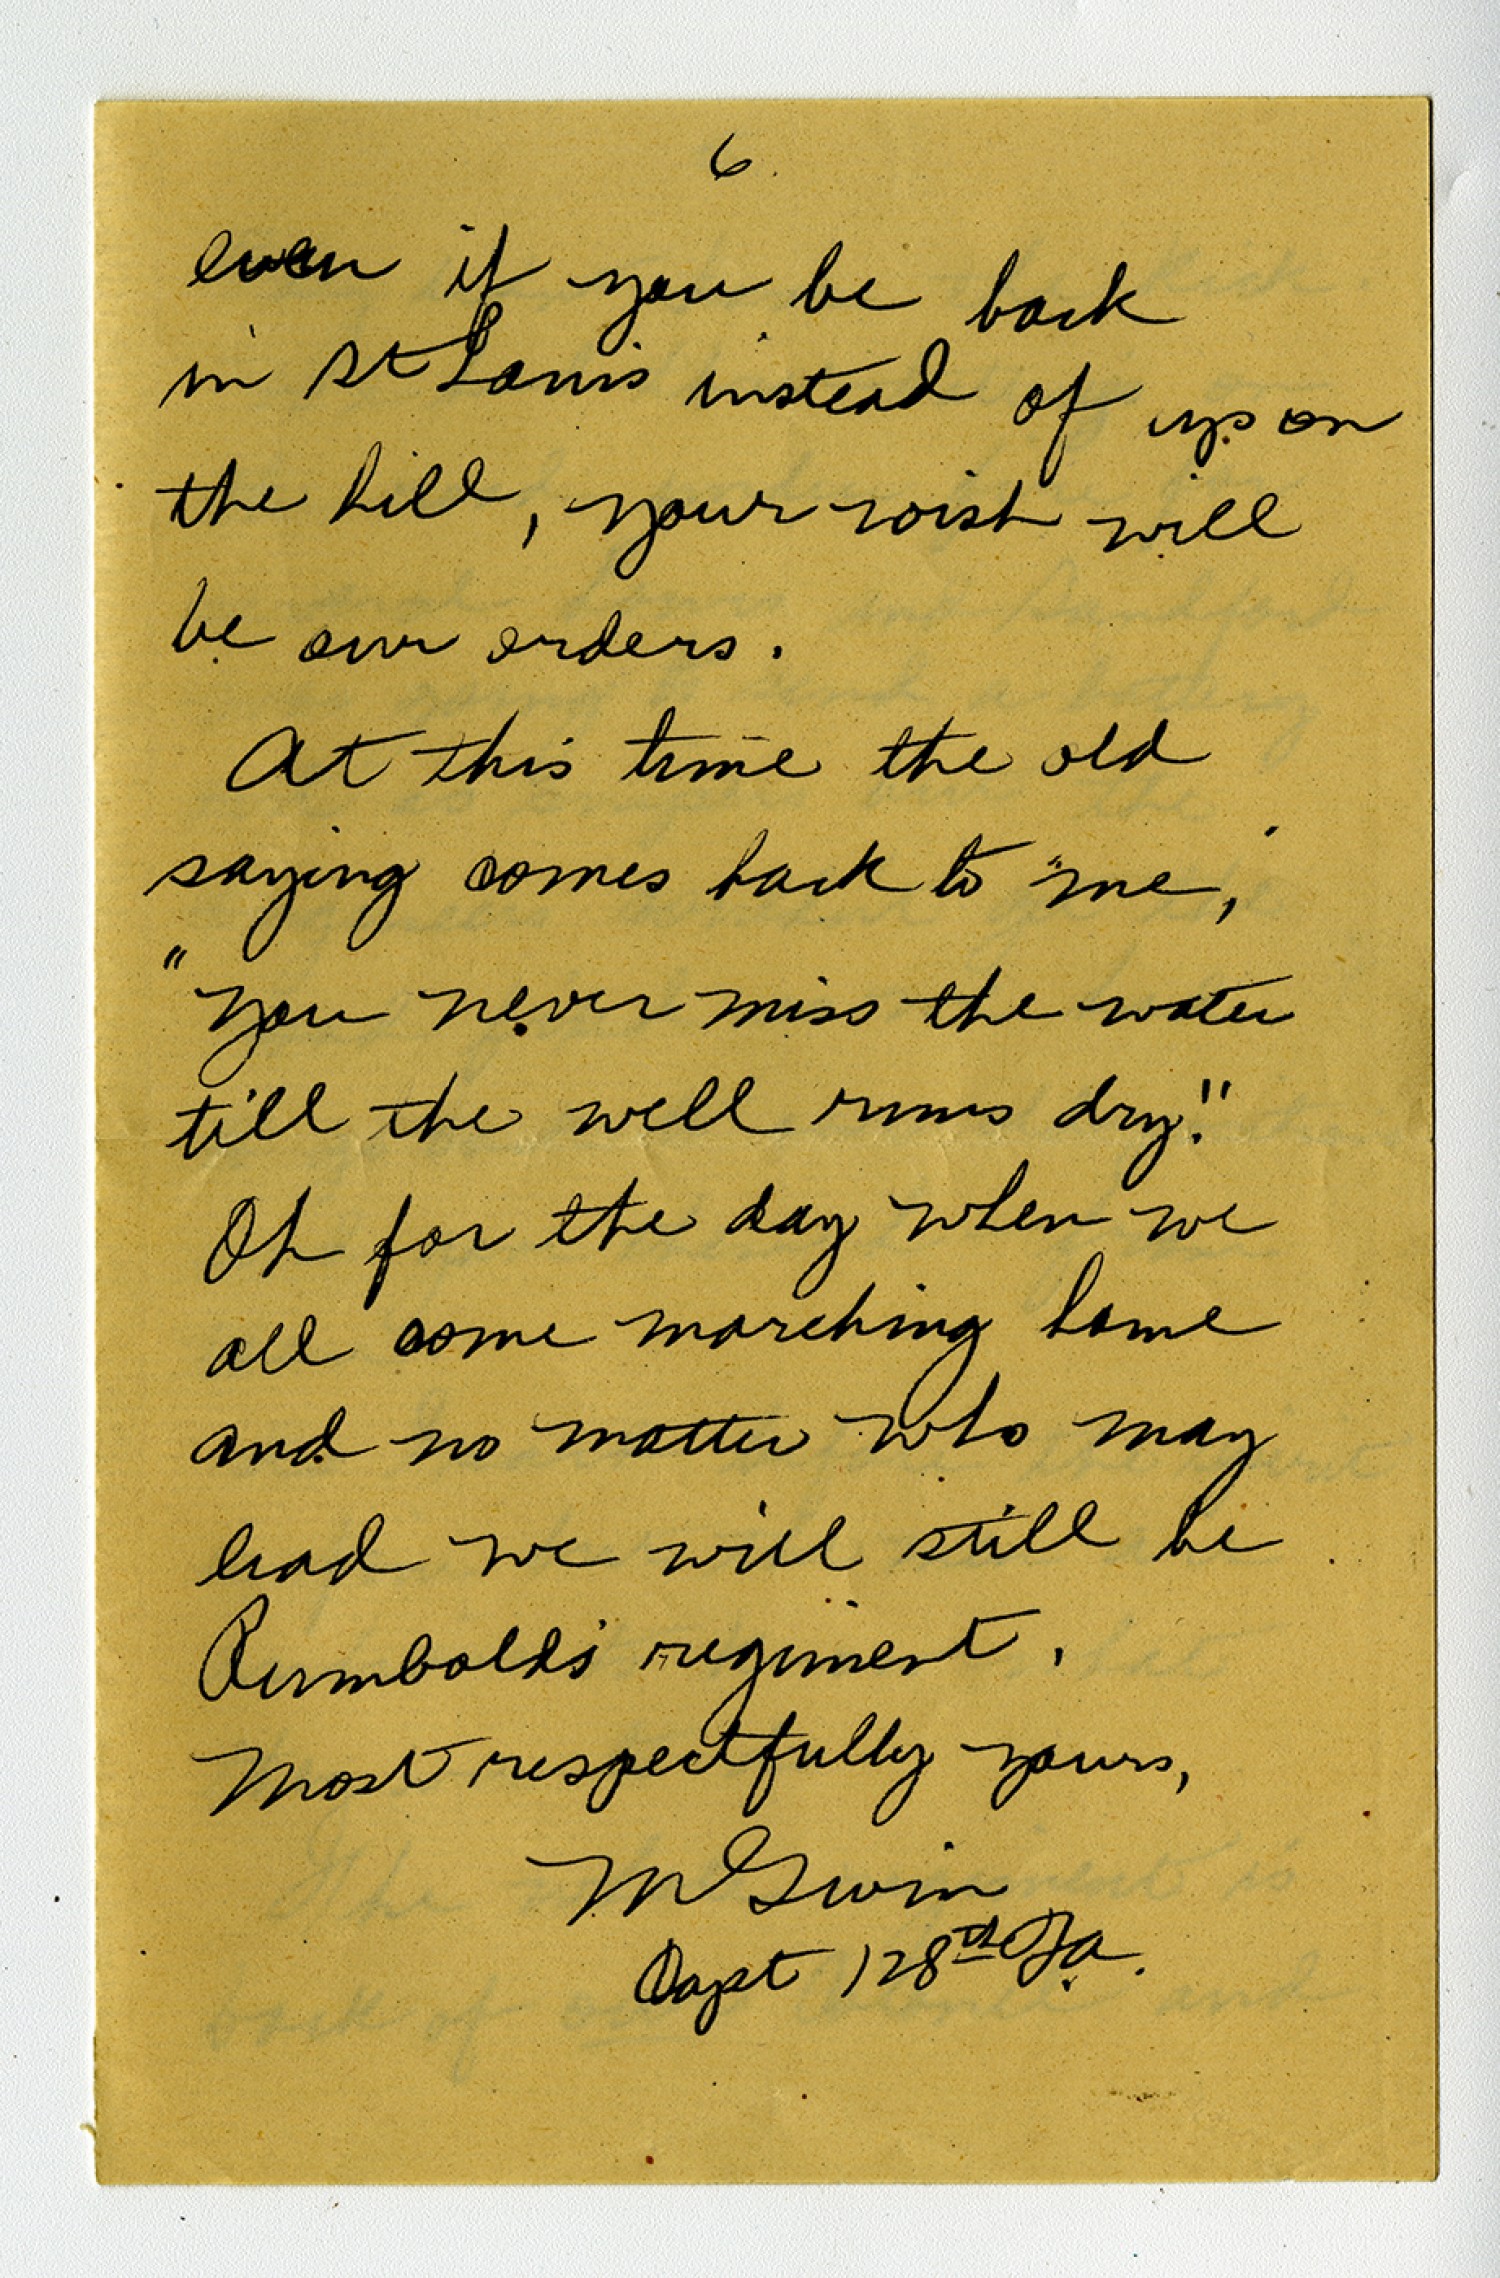 6.
even if you be back
in St Louis instead of up on
the hill, your wish will
be our orders.
At this time the old
saying comes back to me,
"You never miss the water
till the well runs dry."
Oh for the day when we
all come marching home
and no matter who may
lead we will still be
Rumbold's regiment.
Most respectfully yours,
McGwin
Capt 128th Fa.